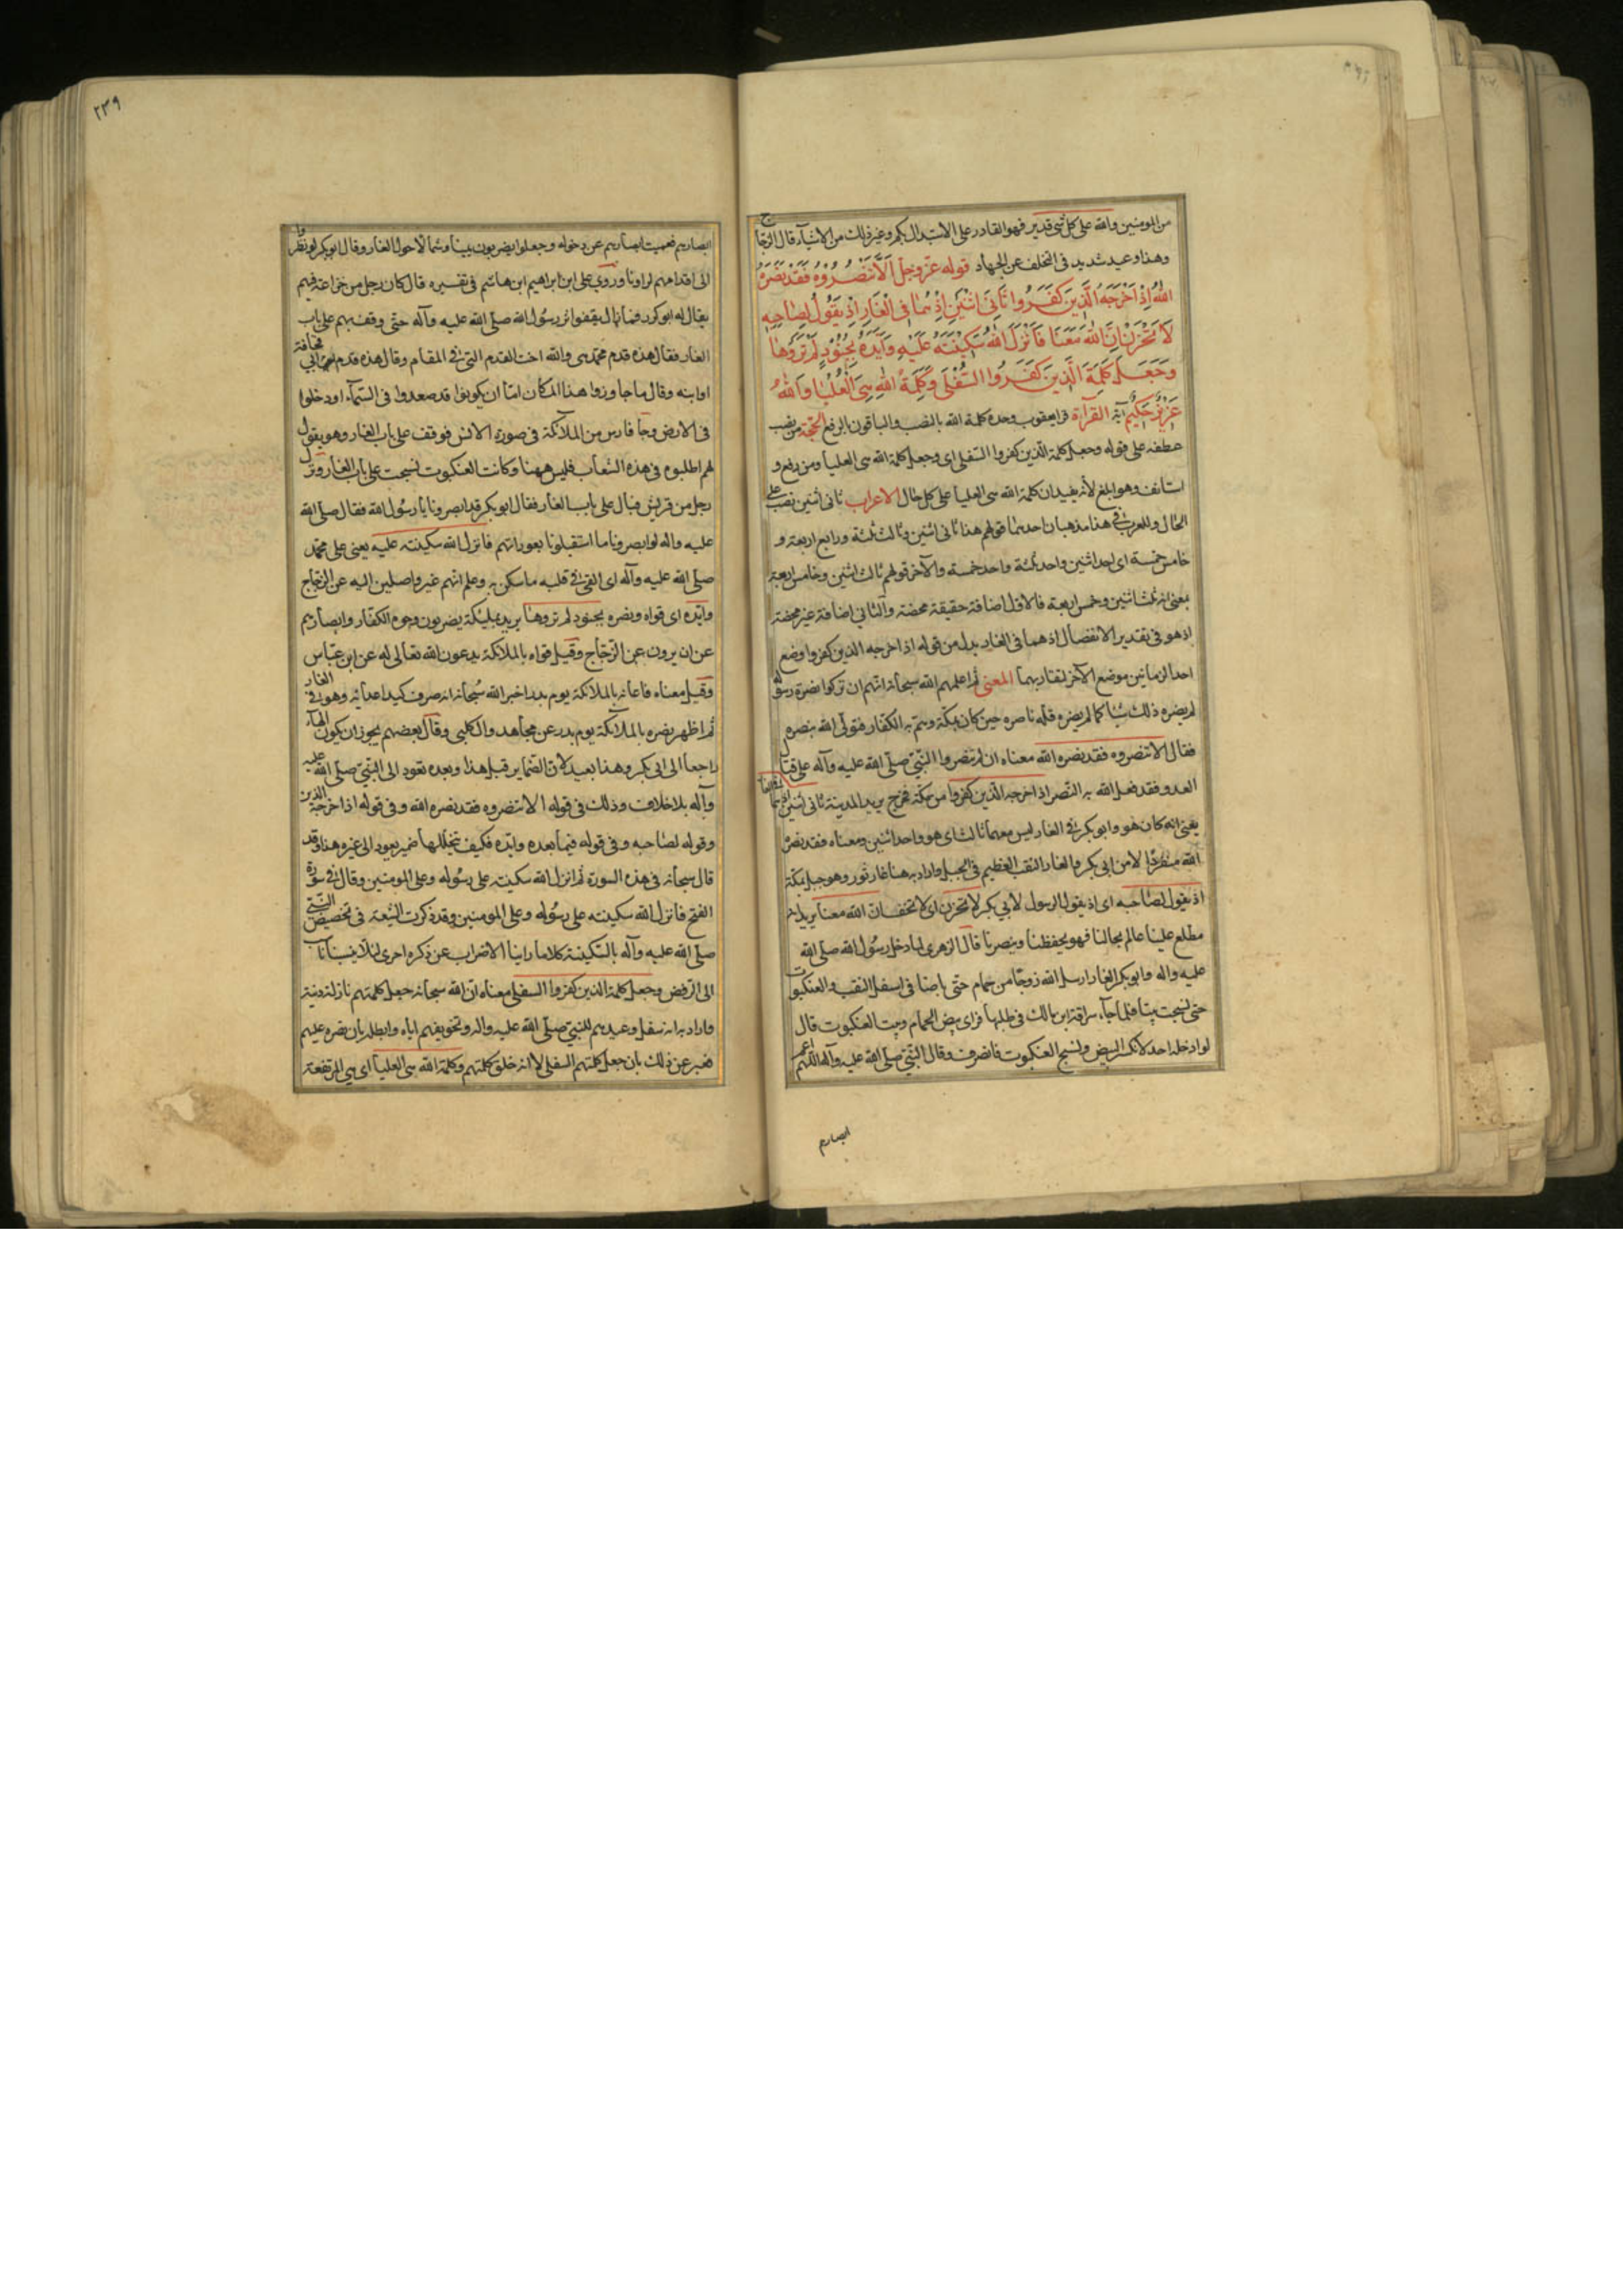 من المومنين والله على كل شى قدير فهو القادر على الاستبدال بكم وغير ذلك من الاشيآء قال الزجاج
وهذا وعيد شديد فى التخلف عن الجهاد قوله عزّ وجلّ اَلَّا تَنْصُرُوْهُ فَقَدْ نَصَرَهُ
اللهُ اِذْ اَخْرَجَهُ الَّذِيْنَ كَفَرُوا ثَانِيَ اثْنَيْنِ اِذْ هُمَا فِى الْغَارِ اِذْ يَقُوْلُ لِصَاحِبِهِ
لَا تَحْزَنْ اِنَّ اللهَ مَعَنَا فَاَنْزَلَ اللهُ سَكِيْنَتَهُ عَلَيْهِ وَاَيَّدَهُ بِجُنُوْدٍ لَمْ تَرَوْهَا
وَجَعَلَ كَلِمَةَ الَّذِيْنَ كَفَرُوا السُّفْلَى وَكَلِمَةُ اللهِ هِىَ الْعُلْيَا وَاللهُ
عَزِيْزٌ حَكِيْمٌ آية القرآءة قرا يعقوب وحده كلمة الله بالنصب والباقون بالرفع الحجة من نصب
عطفه على قوله وجعل كلمة الذين كفروا السفلى اى وجعل كلمة الله هى العليا ومن رفع و
استانف وهو ابلغ لأنه يفيد ان كلمة الله هى العليا على كل حال الاعراب ثانى اثنين نصب على
الحال وللعرب فى هذا مذهبان احدهما قولهم هذا ثانى اثنين وثالث ثلثة ورابع اربعة و
خامس خمسة اى احد اثنين واحد ثلثة واحد خمسة والآخر قولهم ثالث اثنين وخامس اربعة
بمعنى انه ثلث اثنين وخمس اربعة فالاول اضافة حقيقة محضة والثانى اضافة غير محضة
اذ هو فى تقدير الانفصال اذ هما فى الغار بدل من قوله اذ اخرجه الذين كفروا وضع
احد الزمانين موضع الآخر لتقاربهما المعنى ثم اعلمهم الله سبحانه انهم ان تركوا نصرة رسوله
لم يضره ذلك شيئا كما لم يضره قلة ناصره حين كان بمكة وهمّ به الكفار فتولّى الله نصره
فقال الا تنصروه فقد نصره الله معناه ان لم تنصروا النبىّ صلّى الله عليه وآله على قتال
العدو فقد فعل الله به النصر اذ اخرجه الذين كفروا من مكة فخرج يريد المدينة ثانى اثنين اذ هما فى الغار
يعنى انه كان هو وابو بكر فى الغار ليس معهما ثالث اى هو واحد اثنين ومعناه فقد نصره
الله منفردًا الا من ابى بكر والغار الثقب العظيم فى الجبل واراد به هنا غار ثور وهو جبل بمكة
اذ يقول لصاحبه اى اذ يقول الرسول لابى بكر لا تحزن اى لا تخف ان الله معنا يريد انه
مطلع علينا عالم بحالنا فهو يحفظنا وينصرنا قال الزهرى لما دخل رسول الله صلى الله
عليه واله وابو بكر الغار ارسل الله زوجًا من حمام حتى باضا فى اسفل الثقب والعنكبوت
حتى نسجت بيتا فلما جآء سراقة ابن مالك فى طلبها فراى بيض الحمام وبيت العنكبوت قال
لو دخله احد لانكسر البيض ونسج العنكبوت فانصرف وقال النبىّ صلّى الله عليه وآله اللهم اعم
ابصارهم
٢٣٩
ابصارهم فعميت ابصارهم عن دخوله وجعلوا يضربون يمينا وشمالا حول الغار وقال ابو بكر لو نظروا
الى اقدامهم لراونا وروى على ابن ابراهيم ابن هاشم فى تفسيره قال كان رجل من خزاعة فيهم
يقال له ابو كرز فما زال يقفوا اثر رسول الله صلى الله عليه وآله حتى وقف بهم على باب
الغار فقال هذه قدم محمد هى والله اخت القدم التى فى المقام وقال هذه قدم ابى قحافة
او ابنه وقال ما جاوزوا هذا المكان امّا ان يكونوا قد صعدوا فى السّمآء او دخلوا
فى الارض وجا فارس من الملآئكة فى صورة الانس فوقف على باب الغار وهو يقول
لهم اطلبوه فى هذه الشعاب فليس ههنا وكانت العنكبوت نسجت على باب الغار ونزل
رجل من قريش فبال على باب الغار فقال ابو بكر قد ابصرونا يا رسول الله فقال صلّى الله
عليه واله لو ابصرونا ما استقبلونا بعوراتهم فانزل الله سكينته عليه يعنى على محمّد
صلّى الله عليه وآله اى القى فى قلبه ما سكن به وعلم انهم غير واصلين اليه عن الزجاج
وايّده اى قواه ونصره بجنود لم تروها يريد بمليكة يضربون وجوه الكفّار وابصارهم
عن ان يروه عن الزّجاج وقيل قواه بالملائكة يدعون الله تعالى له عن ابن عبّاس
وقيل معناه فاعانه بالملائكة يوم بدر اخبر الله سُبحانه انه صرف كيد اعدائه وهو فى الغار
ثم اظهر نصره بالملآئكة يوم بدر عن مجاهد والكلبى وقال بعضهم يجوز ان يكون الهآء
راجعا الى ابى بكر وهذا بعيد لان الضمّاير قبل هذا وبعده تعود الى النبىّ صلّى الله عليه
وآله بلا خلاف وذلك فى قوله الا تنصروه فقد نصره الله وفى قوله اذ اخرجه الذين
وقوله لصاحبه وفى قوله فيما بعده وايّده فكيف يتخللها ضمير يعود الى غيره هذا وقد
قال سبحانه فى هذه السورة ثم انزل الله سكينته على رسُوله وعلى المومنين وقال فى سورة
الفتح فانزل الله سكينته على رسُوله وعلى المومنين وقد ذكرت الشيعة فى تخصيص النبىّ
صلّى الله عليه وآله بالسّكينة كلاما راينا الاضراب عن ذكره احرى لئلا ينسبنا ناسب
الى الرفض وجعل كلمة الذين كفروا السفلى معناه ان الله سبحانه جعل كلمتهم نازلة دنية
واراد به انه سفل وعيدهم للنبىّ صلّى الله عليه واله وتخويفهم اياه وابطله بان نصره عليهم
فعبر عن ذلك بان جعل كلمتهم السفلى لا انه خلق كلمتهم وكلمة الله هى العليا اى هى المرتفعة